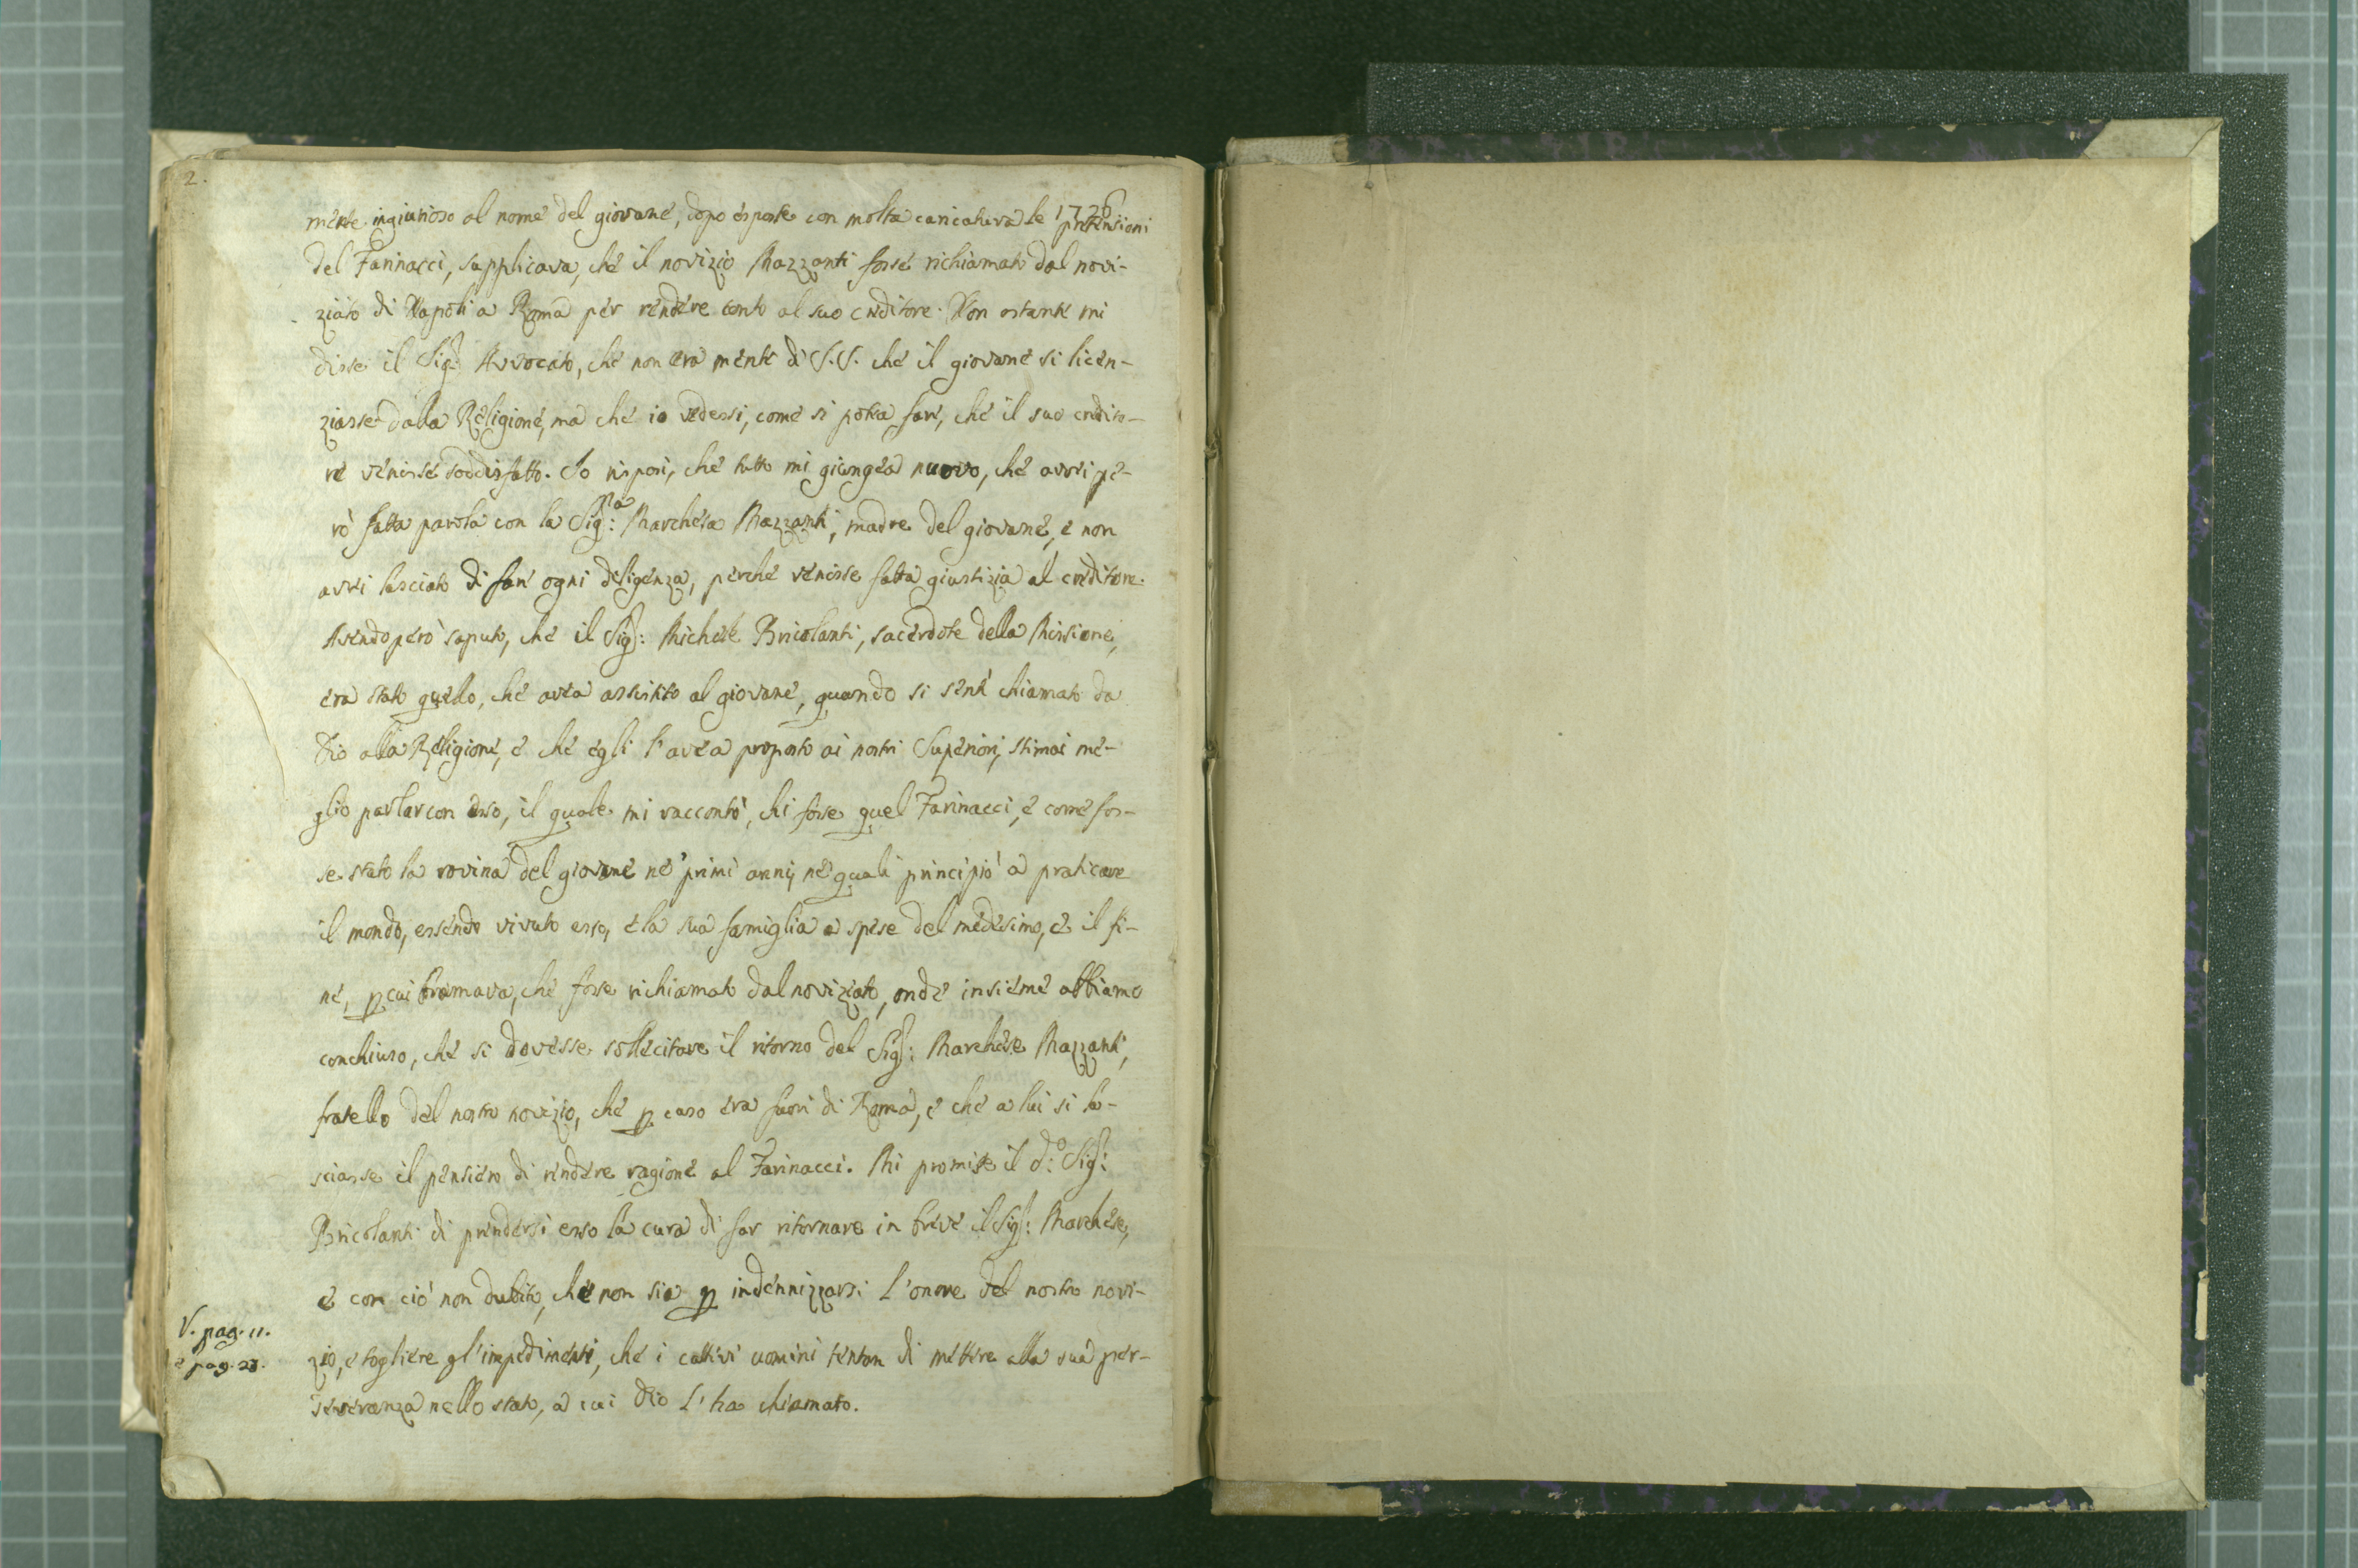 2.
1726
mente ingiurioso al nome del giovane, dopo esposte con molta caricatura le pretensioni
del Farinacci, supplicava, che il novizio Mazzanti fosse richiamato dal novi-
ziato di Napoli a Roma per rendere conto al suo creditore. Non ostante mi
disse il Sig.r Avvocato, che non era mente di S.S. che il giovane si licen-
ziasse dalla Religione, ma che io vedessi, come si potea fare, che il suo credito-
re venisse soddisfatto. Io risposi, che tutto mi giungea nuovo, che avrei pe-
rò fatta parola con la Sig:ra Marchesa Mazzanti, madre del giovane, e non
avrei lasciato di fare ogni deligenza, perché venisse fatta giustizia al creditore.
Avendo però saputo, che il Sig.r: Michele Bricolanti, sacerdote della Missione,
era stato quello, che avea assistito al giovane, quando si sentì chiamato da
Dio alla Religione, e che egli l'avea proposto ai nostri Superiori, stimai me-
glio parlar con esso, il quale mi raccontò, chi fosse quel Farinacci, e come fos-
se stato la rovina del giovane ne' primi anni, ne' quali principiò a praticare
il mondo, essendo vivuto esso, e la sua famiglia a spese del medesimo, e il fi-
ne, p cui bramava, che fosse richiamato dal noviziato, onde insieme abbiamo
conchiuso, che si dovesse sollecitare il ritorno del Sig.r: Marchese Mazzanti,
fratello del nostro novizio, che p caso era fuori di Roma, e che a lui si la-
sciasse il pensiero di rendere ragione al Farinacci. Mi promise il d:o Sig.r:
Bricolanti di prendersi esso la cura di far ritornare in breve il Sig.r: Marchese,
e con ciò non dubito, che non sia p indennizzarsi l'onore del nostro novi-
V. pag. 11.
e pag. 23.
zio, e togliere gl'impedimenti, che i cattivi uomini tentan di mettere alla sua per-
severanza nello stato, a cui Dio l'ha chiamato.